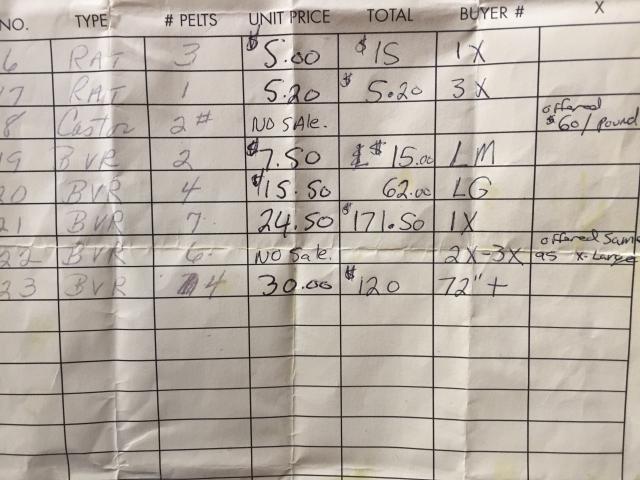 NO. TYPE # PELTS UNIT PRICE TOTAL BUYER # X
6 RAT 3 $5.00 $15 1X
17 RAT 1 5.20 $5.20 3X
8 Castor 2# NO SALE. offered $60/pound
19 BVR 2 $7.50 $15.00 LM
20 BVR 4 $15.50 62.00 LG
21 BVR 7 24.50 $171.50 1X
22 BVR 6 NO Sale. 2X-3X offered Same as X-Large
23 BVR 4 30.00 $120 72"+